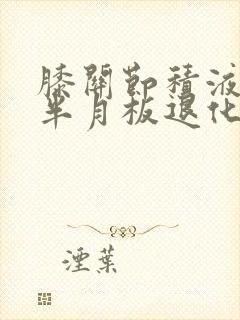 膝關節積液
半月板退化
煙葉